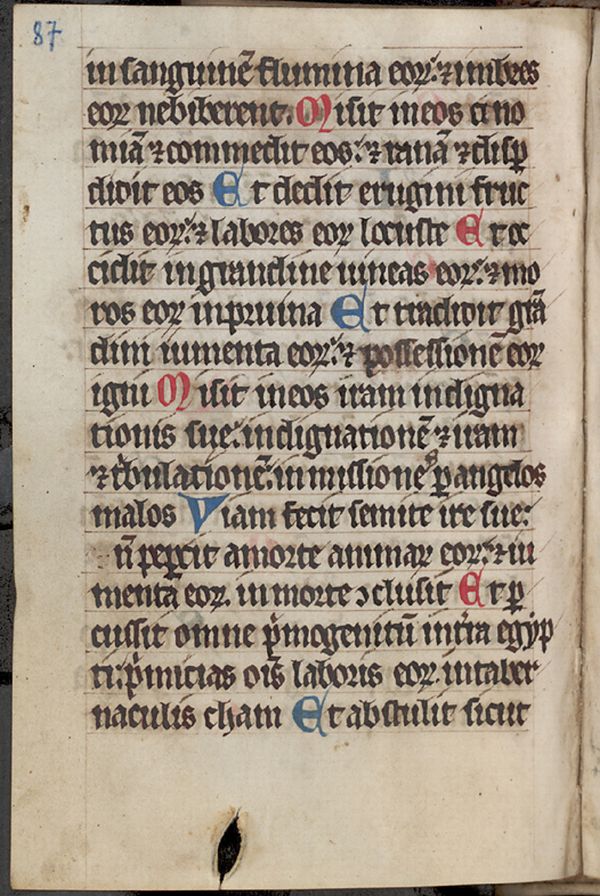 87
in sanguinē flumina eoꝝ: ⁊ imbres
eoꝝ ne biberent. Misit in eos cino
miā ⁊ commedit eos: ⁊ ranā ⁊ disꝑ
didit eos Et dedit erugini fruc
tus eoꝝ: ⁊ labores eoꝝ locuste Et oc
cidit in grandine uineas eoꝝ: ⁊ mo
ros eoꝝ in pruina Et tradidit grā
dini iumenta eoꝝ: ⁊ possessionē eoꝝ
igni Misit in eos iram indigna
tionis sue: indignationē ⁊ iram
⁊ tͥbulationē: inmissionē ꝑ angelos
malos Viam fecit semite ire sue:
n̄ peꝑcit a morte animaꝝ eoꝝ: ⁊ iu
menta eoꝝ. in morte ↄclusit Et ꝑ
cussit omne pͥmogenitū in tͥra egyp
ti: pͥmicias oīs laboris eoꝝ. in taber
naculis cham Et abstulit sicut